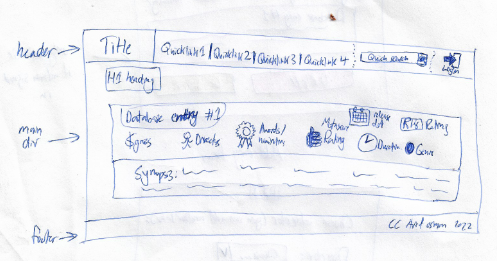 header
Title
Quicklink1 | Quicklink2 | Quicklink3 | Quicklink 4
Quick search
Logon
H1 heading
main
div
Database entry #1
Directors
Awards/
Metascore
Rating
release
Rating
Duration
Genre
Synopsis:
footer
2022